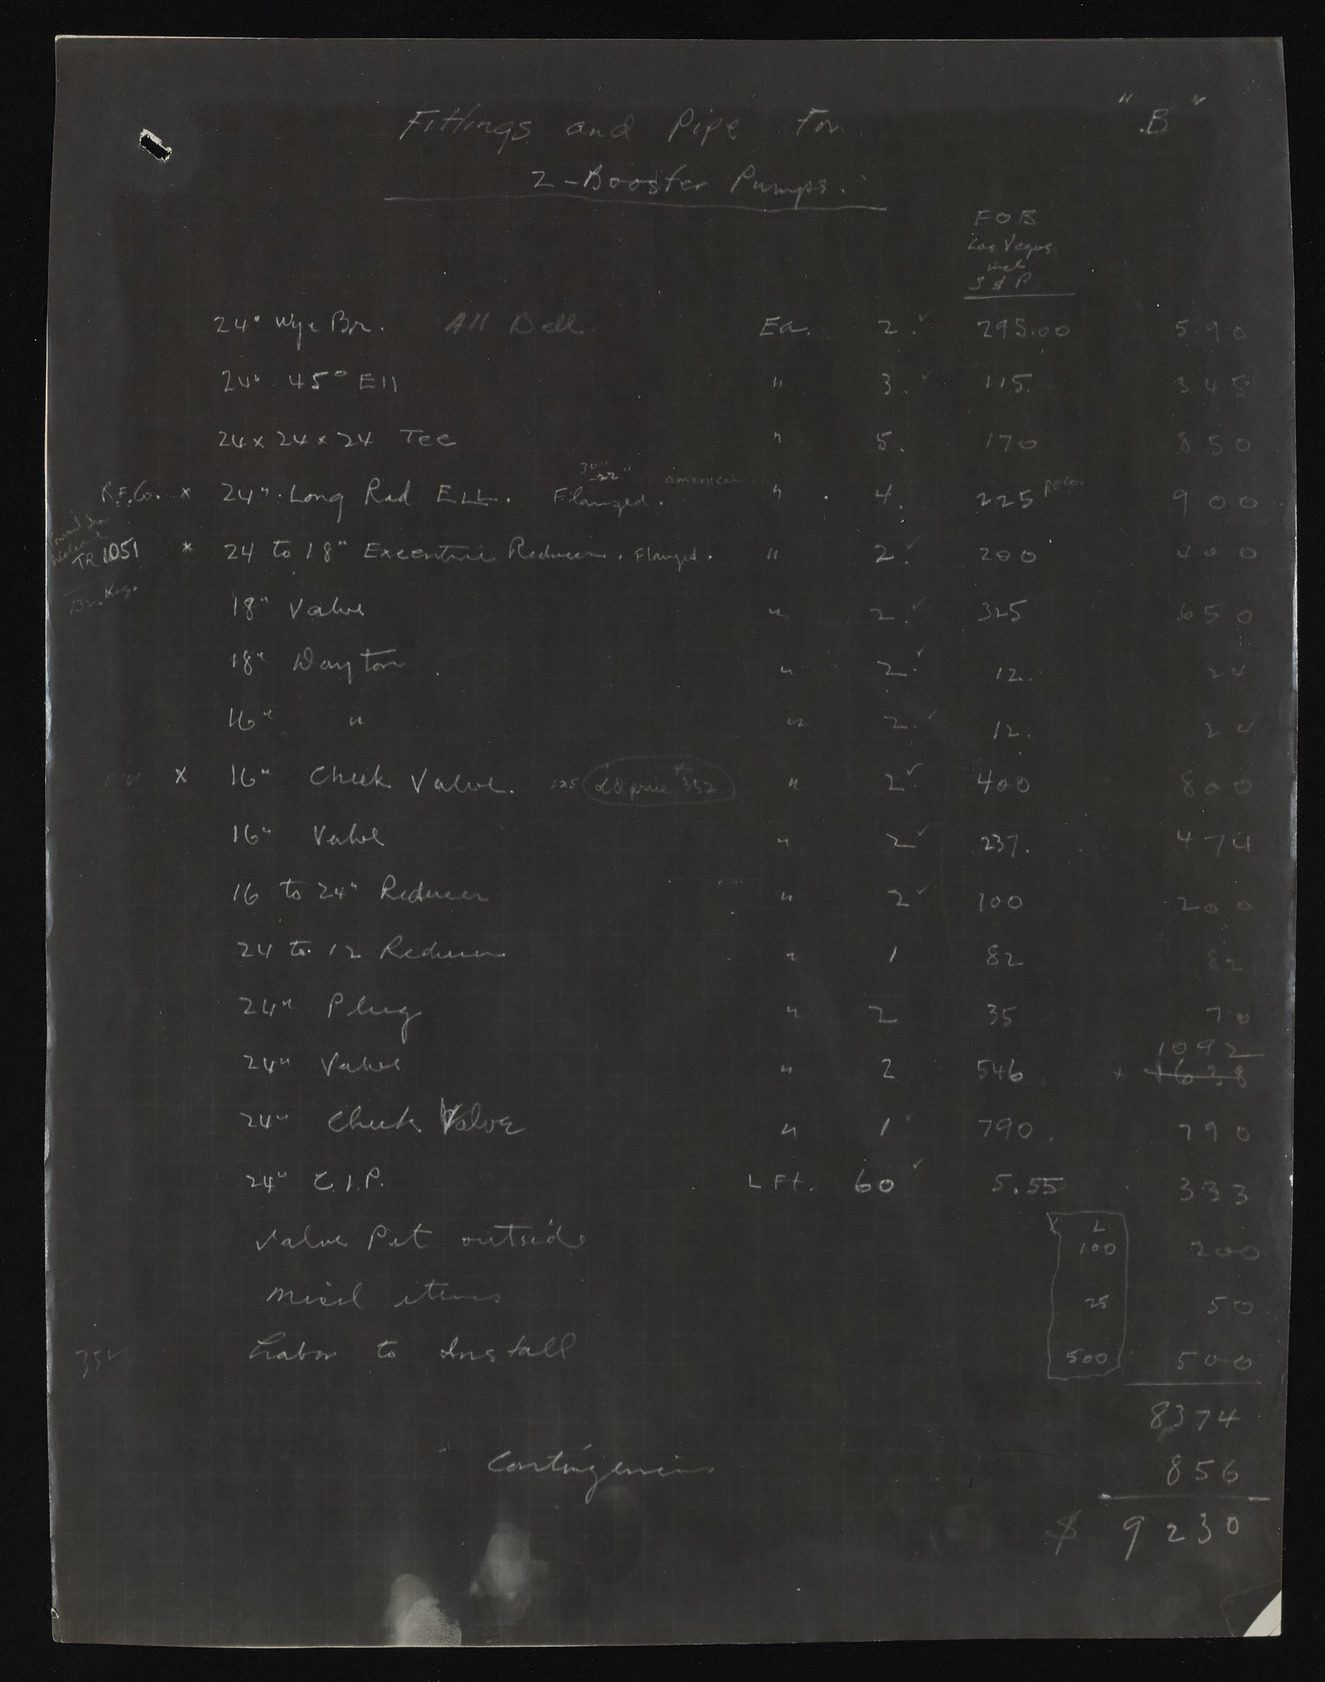 Fittings and Pipe For "B"
2-Booster Pumps.
FOB
Las Vegas
S & P
24" Wye Br. All Bell Ea. 2. ✓ 295.00 590
24" 45° Ell " 3. ✓ 115. 345
24 x 24 x 24 Tee " 5. 170 850
american
R.F.Co. x 24" Long Rad Ell. Flanged. " 4. 225 900
TR 1051 x 24 to 18" Excentric Reducer. Flanged. " 2. ✓ 200 400
18" Valve " 2. ✓ 325 650
18" Dayton " 2 ✓ 12. 24
16" " " 2 ✓ 12. 24
x 16" Check Valve. 125 old price 352 " 2 ✓ 400 800
16" Valve " 2 ✓ 237. 474
16 to 24" Reducer " 2 ✓ 100 200
24 to 12 Reducer " 1 82 82
24" Plug " 2 35 70
1092
24" Valve " 2 546 x 1638
24" Check Valve " 1 ✓ 790. 790
24" C.I.P. L Ft. 60 ✓ 5.55 333
L
Valve Pit outside 100 200
Miscl items 25 50
Labor to Install 500 500
8374
Contingencies 856
$ 9230